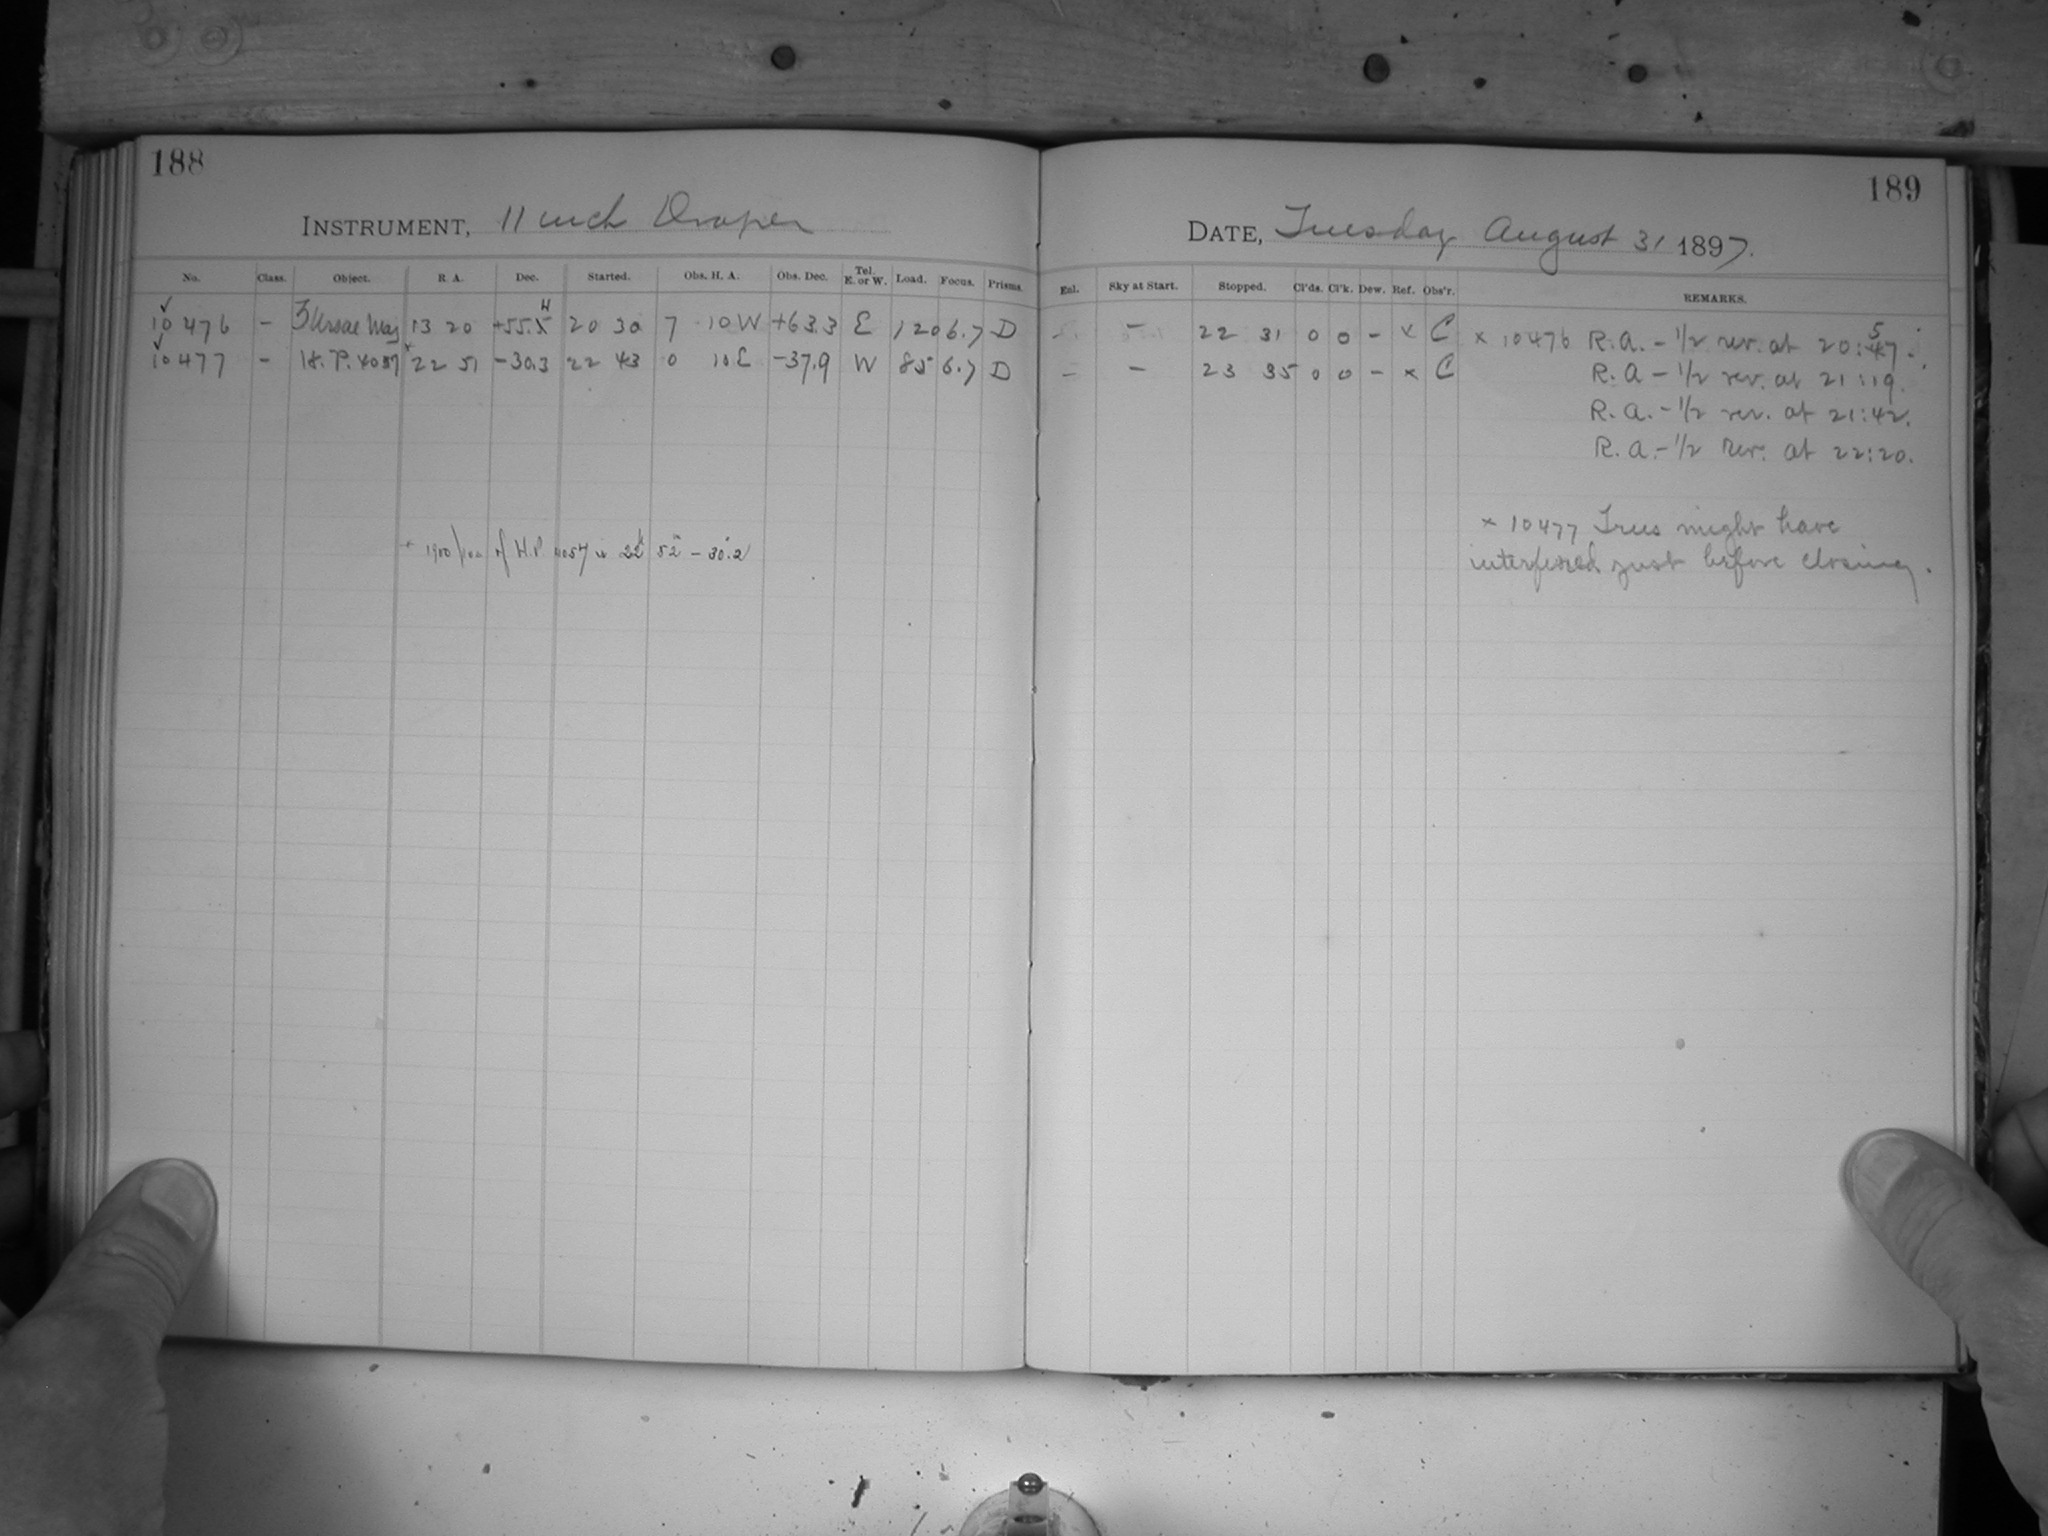 188
INSTRUMENT, 11 inch Draper
No. Class. Object. R. A. Dec. Started. Obs. H. A. Obs. Dec. Tel. E. or W. Load. Focus. Prisms.
10476 – ζ Ursae Maj 13 20 +55.5 4 20 30 7 10 W +63.3 E 120 6.7 D
10477 – H.P. 4057 × 22 51 –30.3 22 43 0 10 E –37.9 W 85 6.7 D
× 1900 pos. of H.P. 4057 is 22h 52m –30°.2
189
DATE, Tuesday August 31 1897.
Enl. Sky at Start. Stopped. Cl'ds. Cl'k. Dew. Ref. Obs'r. REMARKS.
– – 22 31 0 0 – × C × 10476 R.A. – 1/2 rev. at 20:57.
– – 23 35 0 0 – × C R.A – 1/2 rev. at 21:19.
R.A. – 1/2 rev. at 21:42.
R.A. – 1/2 Rev. at 22:20.
× 10477 Trees might have
interfered just before closing.